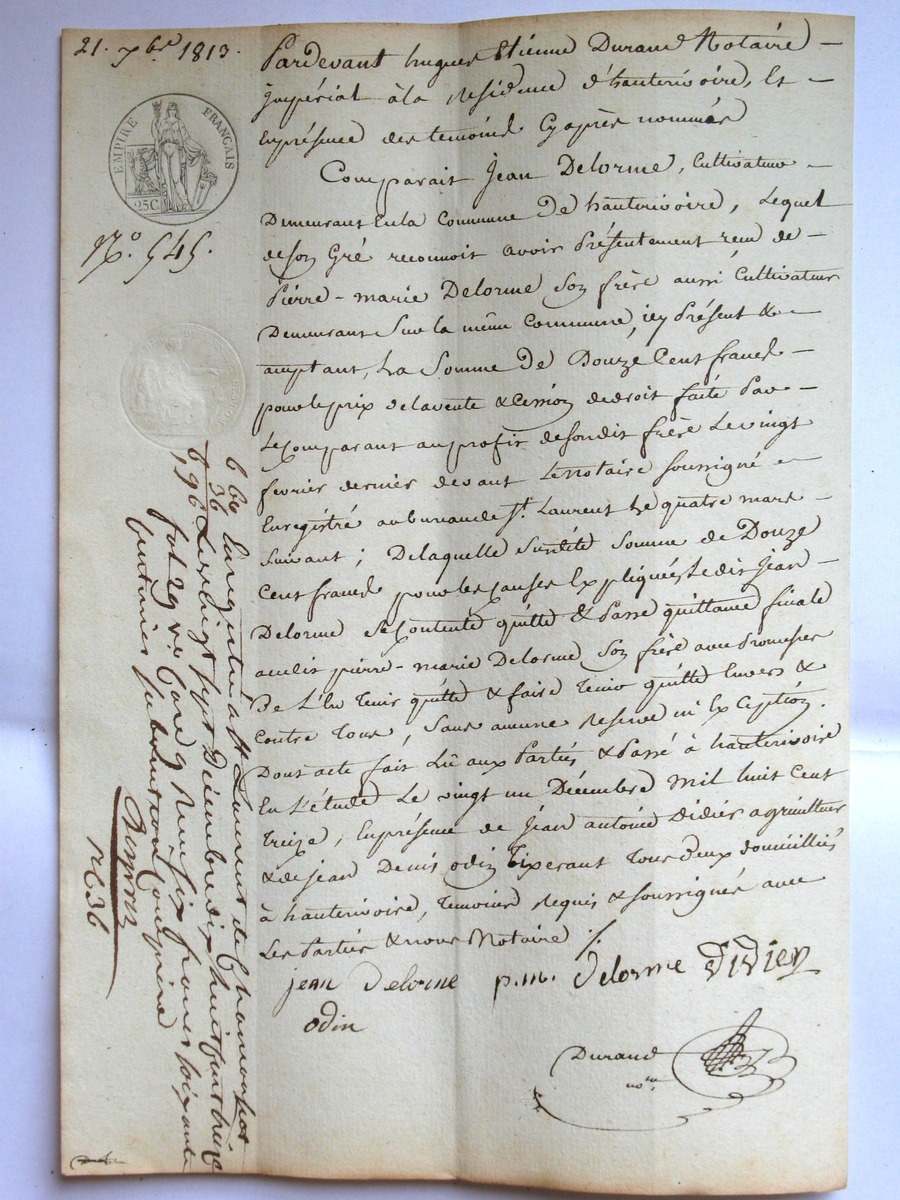 21. 7bre 1813.
EMPIRE FRANÇAIS
25C
No. 545.
Pardevant hugues Etiénne Durand Notaire
jmpérial à la residence d'hauterivoire, Et
Enprésence des temoins Cyaprès nommés
Comparait Jean Delorme, Cultivateur
Demeurant Enla Commune De hauterivoire, Lequel
deson Gré reconnoit avoir Présentement reçu de
Pierre-marie Delorme Son frère aussi Cultivateur
Demeurant Sur la même Commune, icy Présent &
acceptant, La Somme De Douze Cent francs
pour le prix delavente & Cession dedroit faite Par
Le Comparant auprofit desondit frère Le vingt
fevrier dernier devant Lenotaire Soussigné
Enregistré aubureau de St. Laurent Le quatre mars
Suivant ; Delaquelle Susdite Somme de Douze
Cent francs pour les causes Expliquées Ledit Jean
Delorme Se Contente quitte & Passe quittance finale
audit pierre-marie Delorme Son frère avec Promesse
De L'En Tenir quitte & faire Tenir quitte Envers &
Contre Tous, Sans aucune Reserve ni Exception.
Dont acte fait Lû aux Parties & Passé à hauterivoire
En L'étude Le vingt un Décembre Mil huit Cent
Treize, Enprésence de Jean antoine Didier agriculteur
& de Jean Denis odin Tixerant Tous deux domiciliés
à hauterivoire, Temoins Requis & Soussignés avec
Les Parties & nous Notaire ./.
jean Delorme
p.m. Delorme
Didier
odin
Durand
nore
6 60
36
6 96
Enregistré à St Laurent de Chamousset
Le vingt sept Décembre dix huit cent treize
fol 29 vo Case 9 Reçu six francs soixante
centimes subvention Comprise